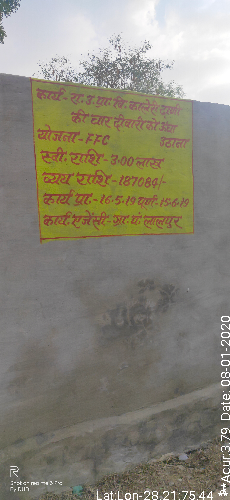 कार्य - रा. उ. प्रा. वि.
की चार दीवारी को ऊँचा
उठाना
योजना - FFC
स्वी. राशि - 3.00 लाख
व्यय राशि - 187084/-
कार्य प्रा. - 16-5-19 पूर्ण. 15-6-19
कार्य एजेंसी - ग्रा. पं. लालपुर
Shot on realme 3 Pro
Lat:Lon-28.21:75.44
**Acur 3.79 Date: 08-01-2020